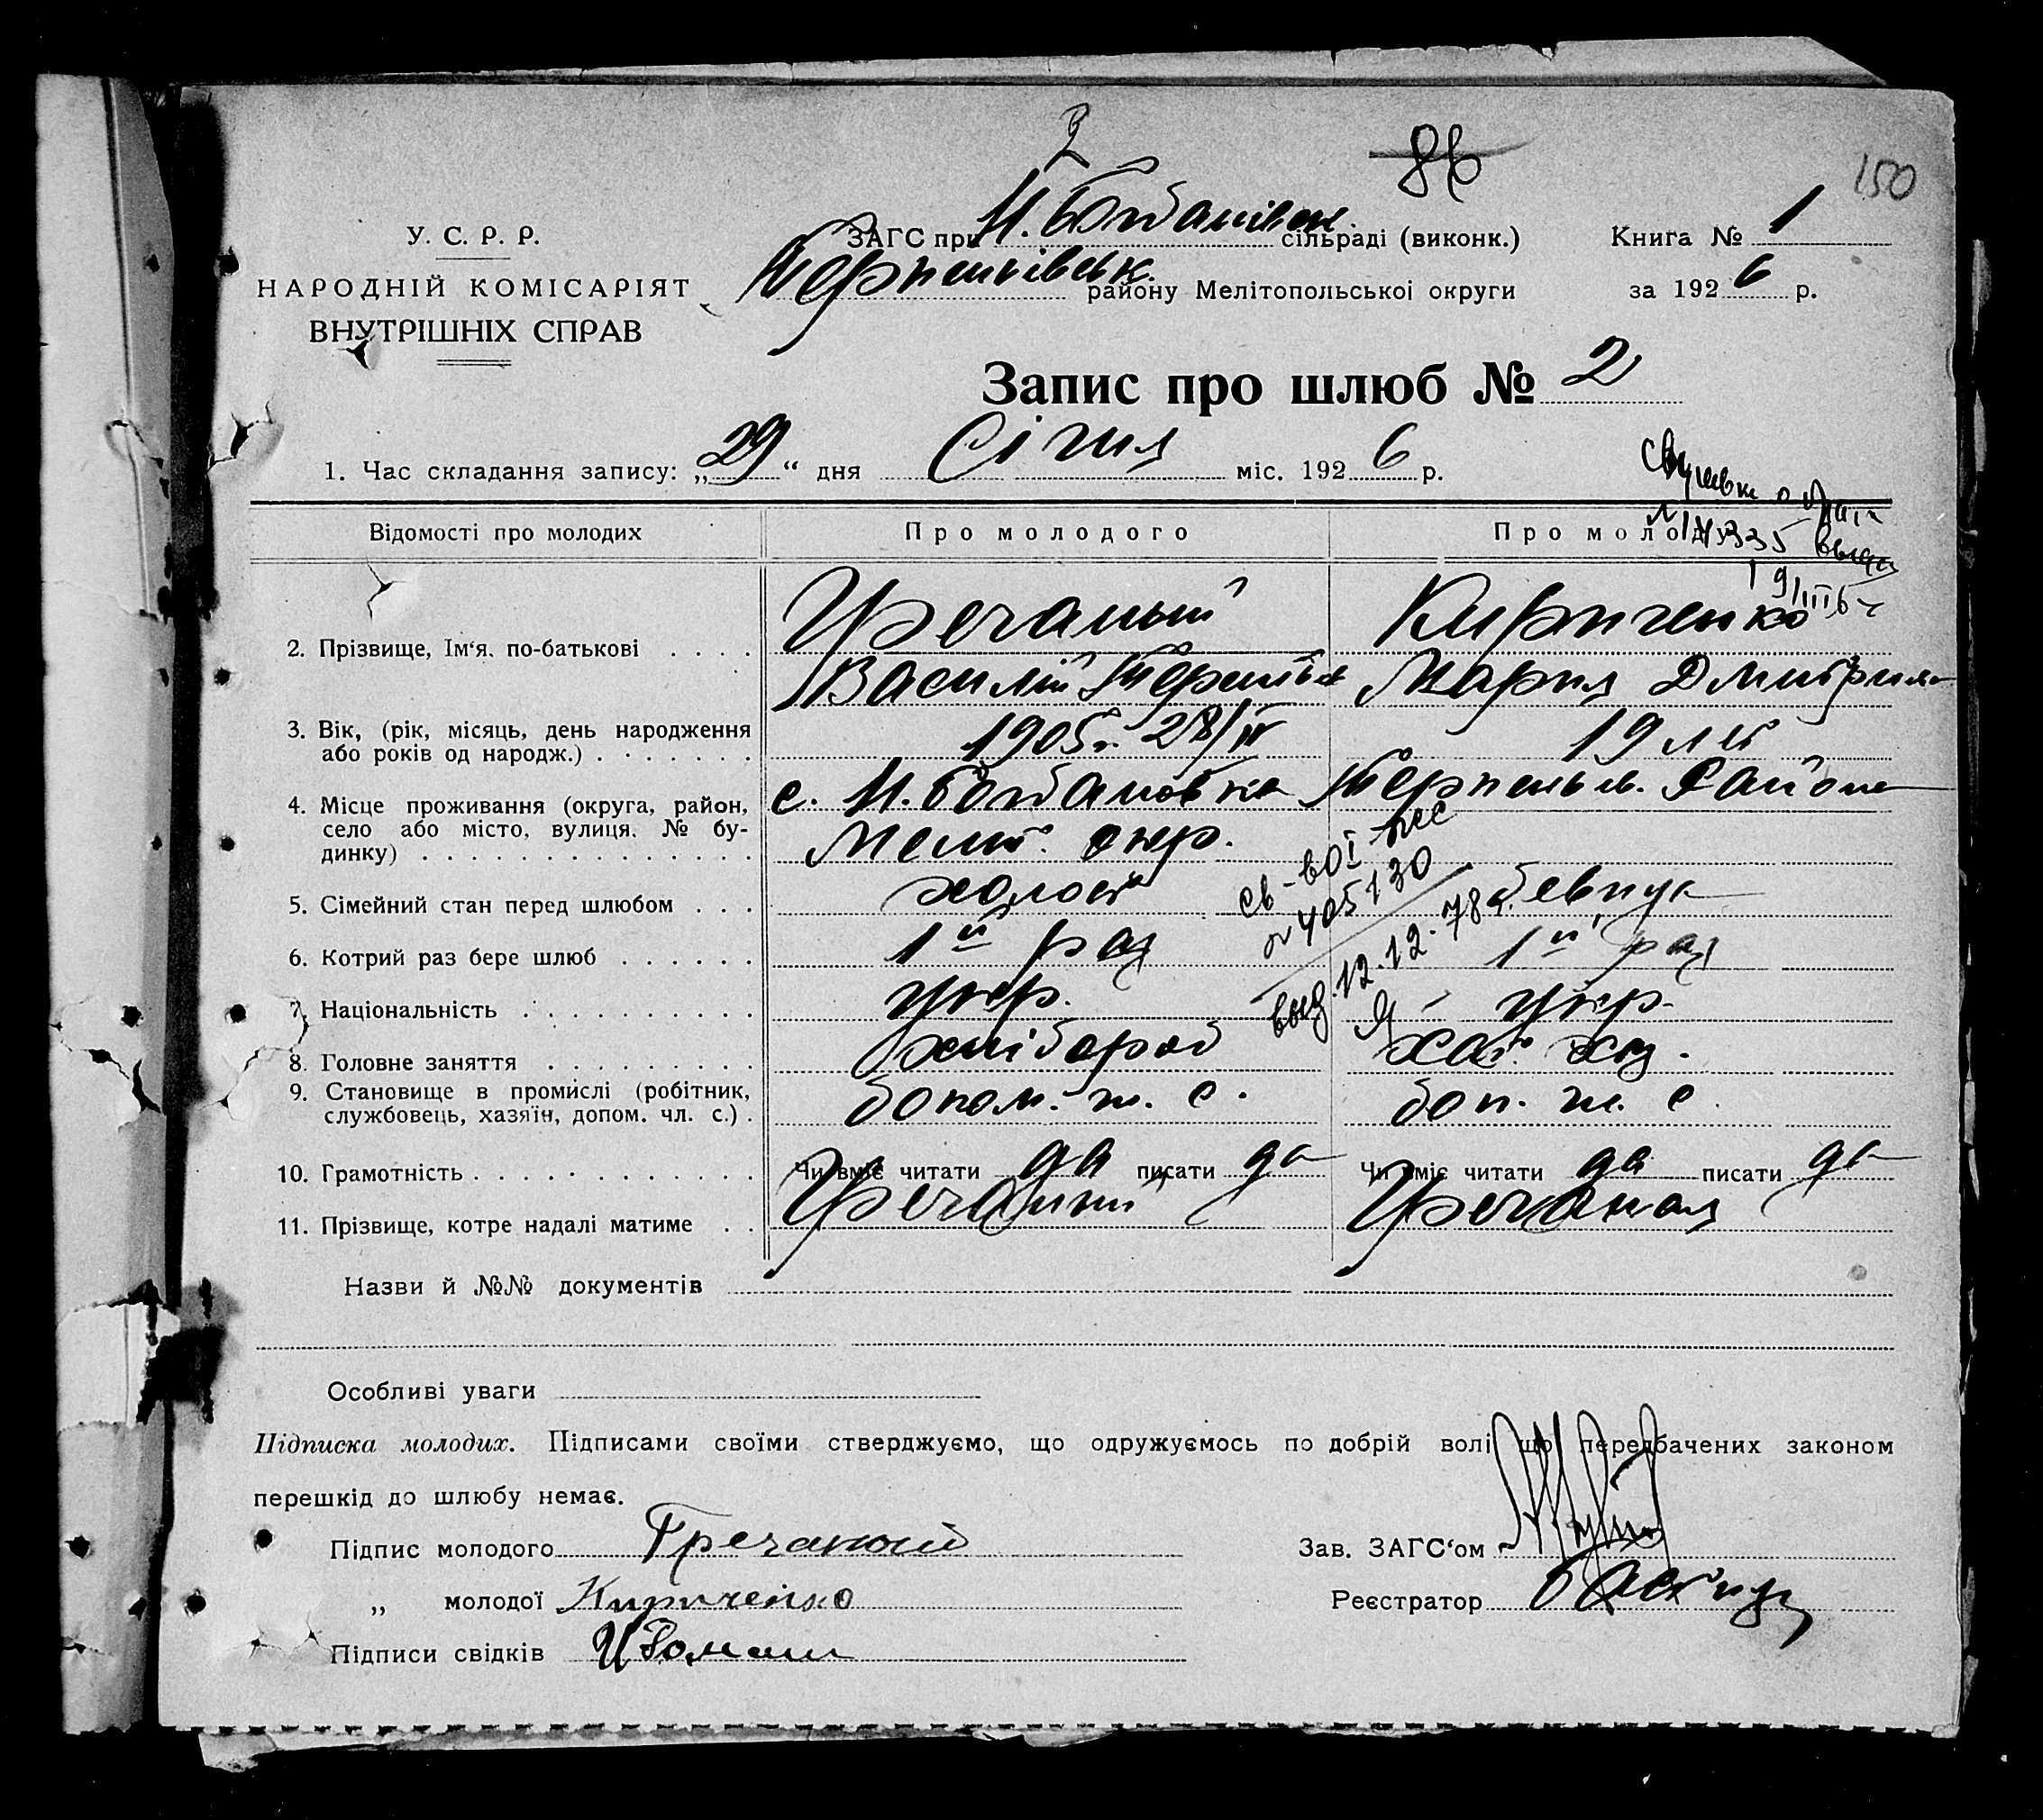 2
86
150
У. С. Р. Р.
НАРОДНІЙ КОМІСАРІЯТ
ВНУТРІШНІХ СПРАВ
ЗАГС при Н. Богданівск. сільраді (виконк.)
Терпеньівськ. району Мелітопольськоі округи
Книга № 1
за 1926 р.
Запис про шлюб № 2
1. Час складання запису: „29“ дня Січня міс. 1926 р.
№ 14335
Відомості про молодих Про молодого Про молоду
2. Прізвище, Ім‘я, по-батькові . . . . Гречаный Кириченко
Василий Мария Дмитриев
3. Вік, (рік, місяць, день народження
або років од народж.) . . . . . . . 1905г. 28/IV 19 лет
4. Місце проживання (округа, район,
село або місто, вулиця, № бу-
динку) . . . . . . . . . . . . . .
с. Н. Богдановка Терпеньев. Района
Мелит. окр.
5. Сімейний стан перед шлюбом . . . холост девица
6. Котрий раз бере шлюб . . . . . . 1й раз 1й раз
7. Національність . . . . . . . . . . укр. укр.
8. Головне заняття . . . . . . . . . хлібороб хат. хоз.
9. Становище в промислі (робітник,
службовець, хазяїн, допом. чл. с.) . допом. ч. с. доп. ч. с.
св-во I
№ 405130
выд. 12.12.78 г.
10. Грамотність . . . . . . . . . . . . Чи вміє читати да писати да Чи вміє читати да писати да
11. Прізвище, котре надалі матиме . . Гречаный Гречаная
Назви й №№ документів
Особливі уваги
Підписка молодих. Підписами своїми стверджуємо, що одружуємось по добрій волі що передбачених законом
перешкід до шлюбу немає.
Підпис молодого Гречаный
„ молодої Кириченко
Підписи свідків
Зав. ЗАГС‘ом
Реєстратор